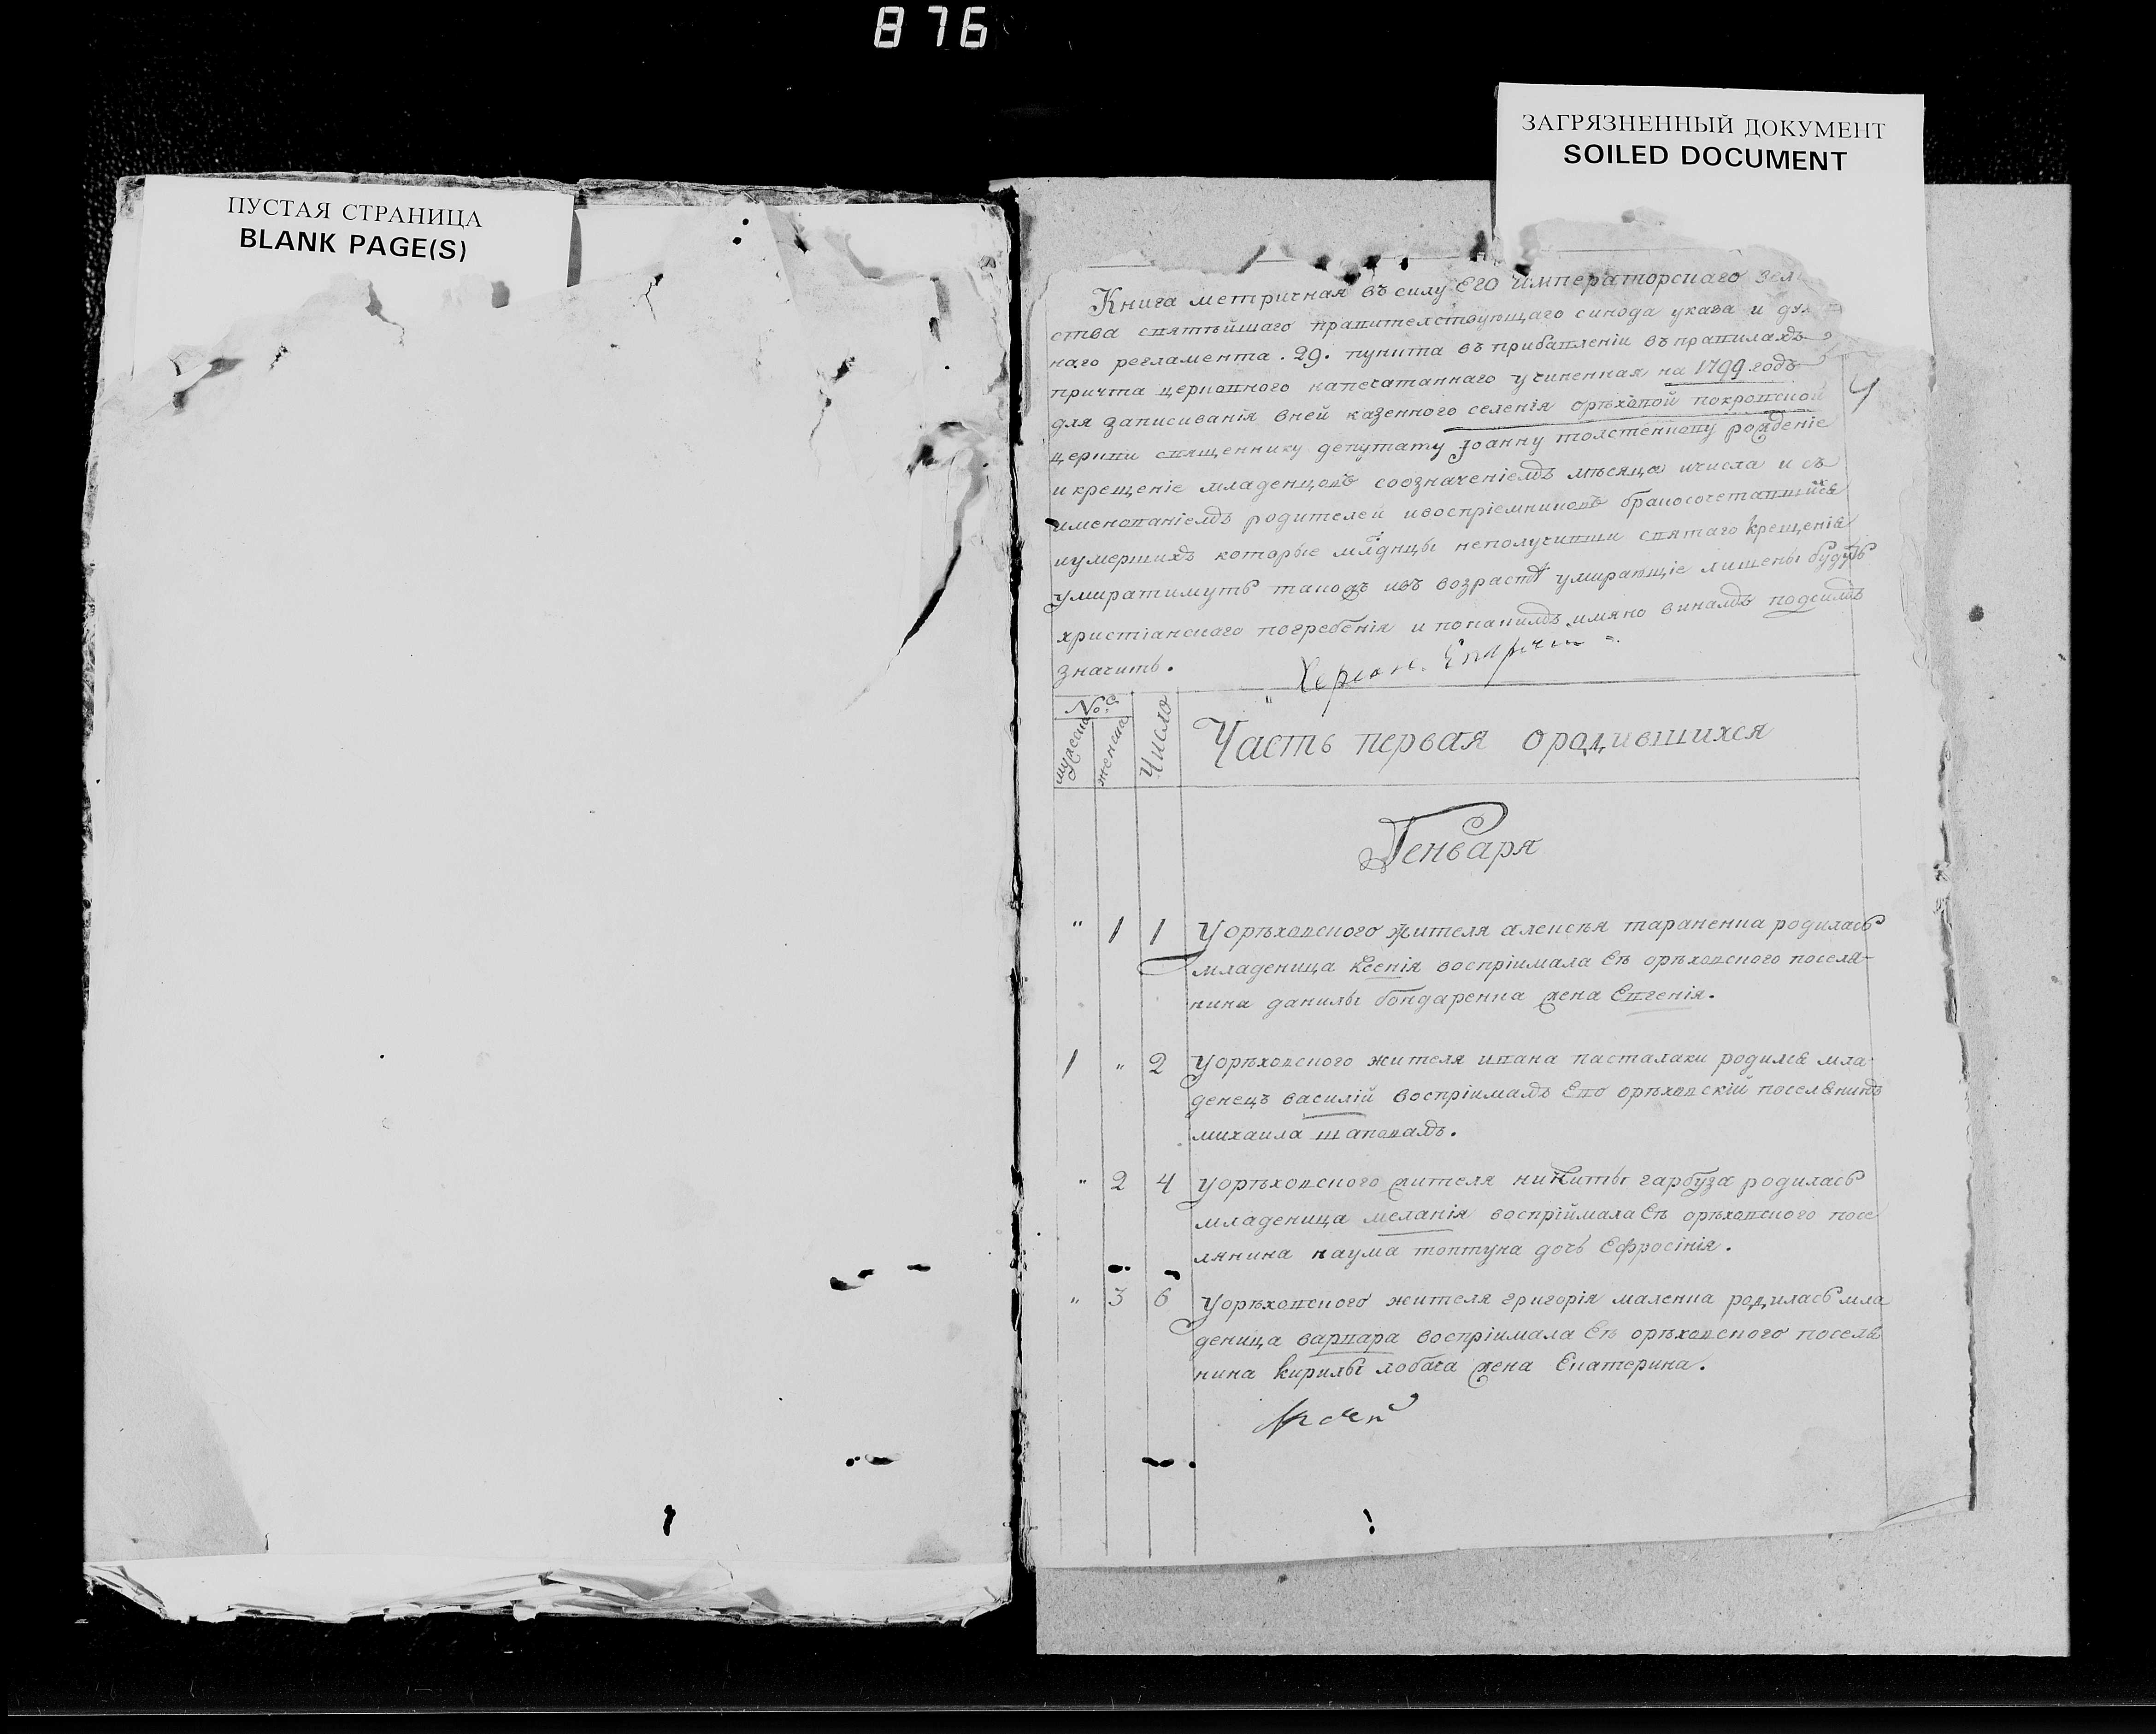 876
ПУСТАЯ СТРАНИЦА
BLANK PAGE(S)
ЗАГРЯЗНЕННЫЙ ДОКУМЕНТ
SOILED DOCUMENT
Книга метричная въ силу Его императорскаго
ства святѣйшаго правителствующаго синода указа и
наго регламента . 29. пункта въ прибавленіи въ правилахъ
причта церковного напечатаннаго учиненная на 1799 годъ
для записиванія вней казенного селенія орѣховой покровской
церкви священнику депутату Іоанну толстенкову рожденіе
и крещеніе младенцовъ соозначеніемъ мѣсяца ичисла и съ
именованіемъ родителей ивоспріемниковъ бракосочетавшихся
иумершихъ которые младнцы неполучивши святаго крещенія
умиратимуть такожъ ивъ возрастѣ умирающіе лишены будуть
христіанскаго погребенія и покакимъ имяно винамъ подсимъ
значить.
Херсон.
№:
мужеска
женска
Число
Часть первая ородившихся
Генваря
" 1 1 Уорѣховского жителя алексѣя тараненка родилась
младеница ксенія воспріимала Еѣ орѣховского поселя-
нина данилы бондаренка жена Евгенія.
1 " 2 Уорѣховского жителя ивана пасталаки родился мла-
денецъ василій воспріималъ Ево орѣховскій поселянинъ
михаила шаповалъ.
" 2 4 Уорѣховского жителя никиты гарбуза родилась
младеница меланія воспріймала Еѣ орѣховского посе
лянина наума топтуна дочь Ефросінія.
" 3 6 Уорѣховского жителя григорія маленка родилась мла
деница варвара воспріимала Еѣ орѣховского поселя
нина кирилы лобача жена Екатерина.